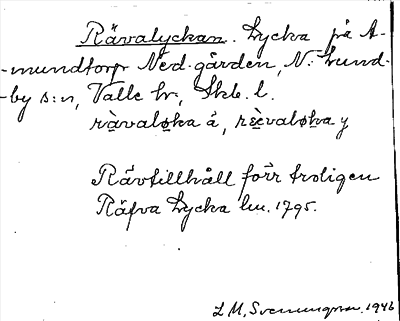 Rävalyckan. Lycka på A-
-mundtorp Ned.gården, N. Lund-
-by s:n, Valle hr, Skb. l.
rävaløka å, rèvaløka y
Rävtillhåll förr troligen
Räfva Lycka lm. 1795.
L M, Svenungsson. 1946